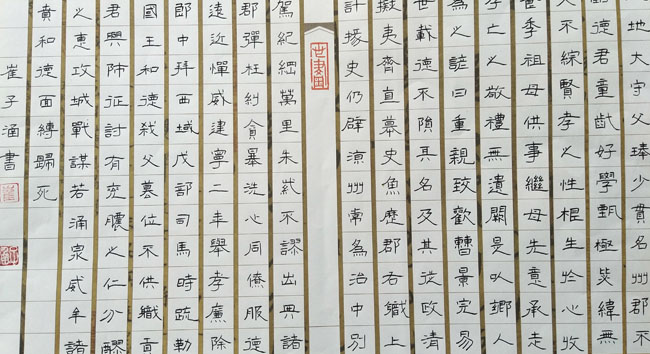 地大守父琫少貫名州郡不
副德君童齔好學甄極毖緯無
文不綜賢孝之性根生於心收
養季祖母供事繼母先意承志
存亡之敬禮無遺闕是以鄉人
為之諺曰重親致歡曹景完易
世載德不隕其名及其從政清
擬夷齊直慕史魚歷郡右職上
計掾史仍辟涼州常為治中別
駕紀綱萬里朱紫不謬出典諸
郡彈枉糾貪暴洗心同僚服德
遠近憚威建寧二年舉孝廉除
郎中拜西域戊部司馬時疏勒
國王和德弒父篡位不供職貢
君興師征討有兗膿之仁分醪
之惠攻城戰謀若涌泉威牟諸
賁和德面縛歸死
崔子涵書